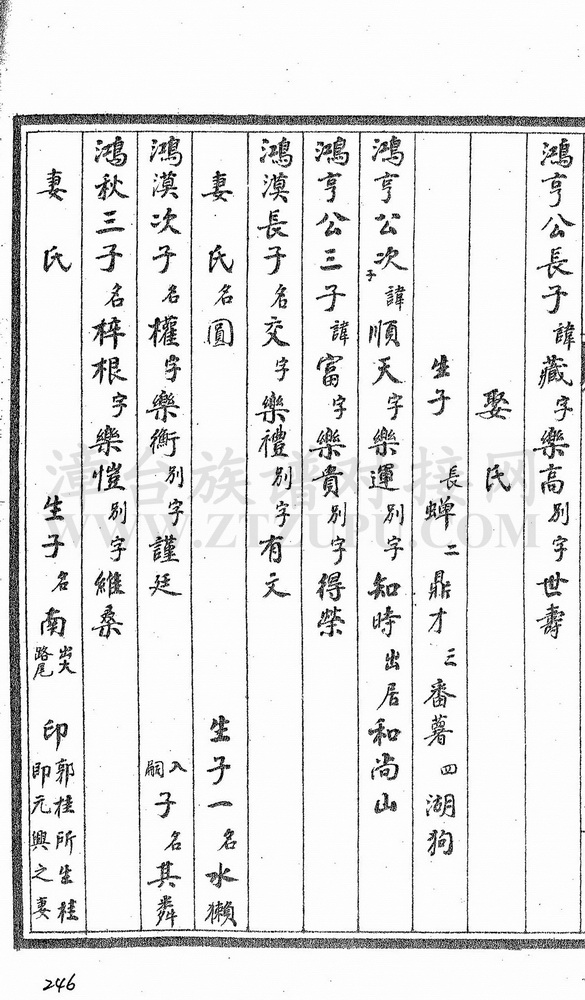 鴻亨公長子諱藏字樂高別字世壽
娶氏
生子長蟬二鼎才三番薯四湖狗
鴻亨公次子諱順天字樂運別字知時出居和尚山
鴻亨公三子諱富字樂貴別字得榮
鴻漠長子名交字樂禮別字有文
妻氏名圓 生子一名水獺
鴻漠次子名權字樂衡別字謹廷 入嗣子名其粦
鴻秋三子名梓根字樂愷別字維桑
妻氏 生子名南出大路尾 印郭桂所生桂即元興之妻
246
漳台族谱对接网
WWW.ZTZUPU.COM